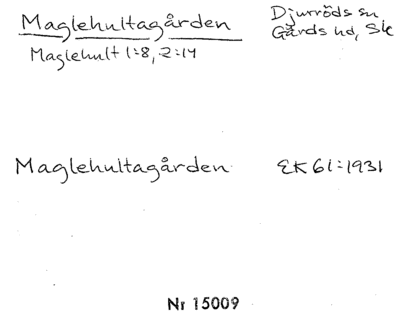 Maglehultagården
Djurröds sn
Gärds hd, Sk
Maglehult 1:8, 2:14
Maglehultagården
EK 61:1931
Nr 15009